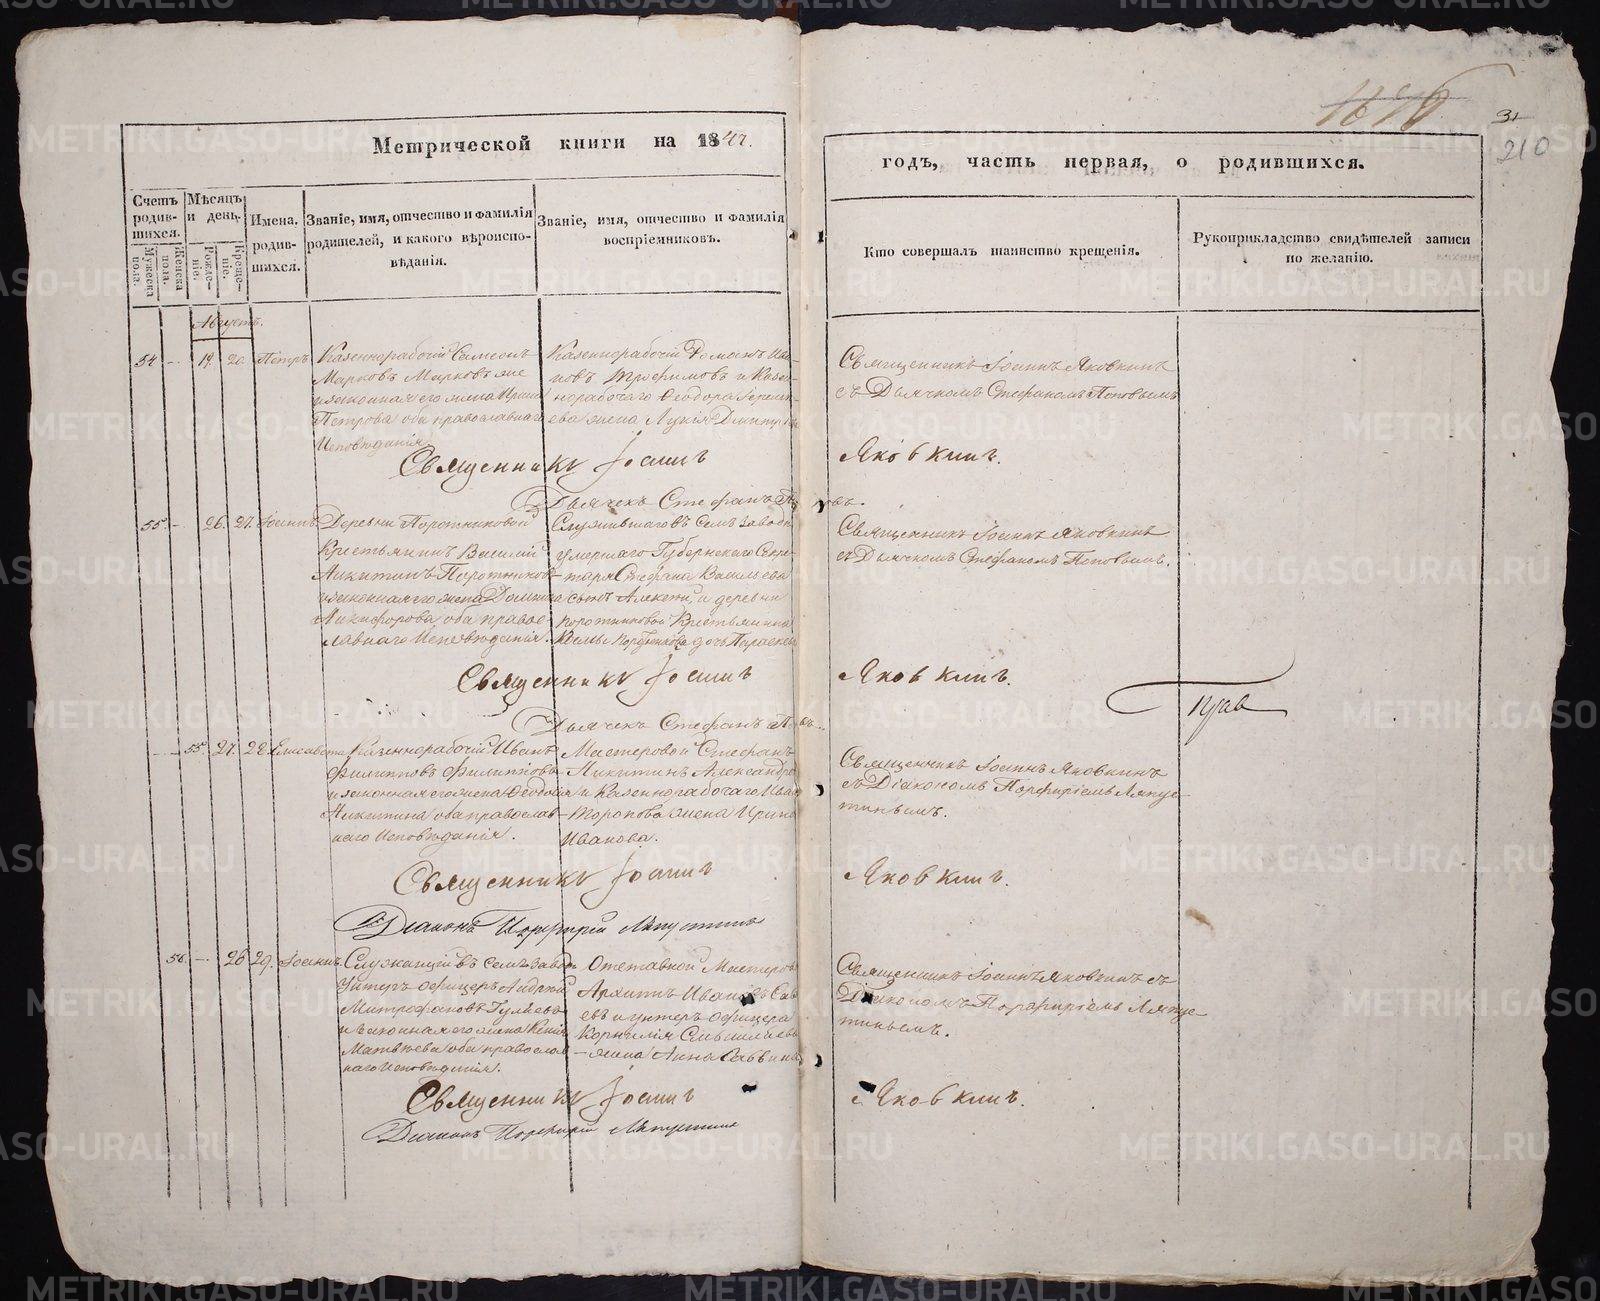 Метрической книги на 1847.
Счетъ родив-шихся.
Мужеска пола.
Женска пола.
Мѣсяцъ и день.
Рожде-ніе.
Креще-ніе.
Имена родив-шихся.
Званіе, имя, отчество и фамилія
родителей, и какого вѣроиспо-
вѣданія.
Званіе, имя, отчество и фамилія
воспріемниковъ.
Августъ.
54 - 19. 20. Петръ
Казеннорабочій Симеонъ
Марковъ Марковъ же
и законная его жена Ирина
Петрова оба православнаго
Исповѣданія
Казеннорабочій Романъ Ива-
новъ Трофимовъ и Казен-
норабочаго Ѳеодора
ева жена Лукія
Священникъ Іоаннъ
Дьячекъ Стефанъ
55. - 26. 27. Іоаннъ
Деревни Поротниковой
Крестьянинъ Василій
Никитинъ Поротниковъ
и законная его жена
Никифорова оба право-
славнаго Исповѣданія.
Служившаго въ семъ заводѣ
умершаго Губернскаго Секре-
таря Стефана Васильева
сынъ и деревни
поротниковой Крестьянина
дочь Параскева
Священникъ Іоаннъ
Дьячекъ Стефанъ
- 55. 27. 28. Елисавета
Казеннорабочій Иванъ
Филипповъ Филипповъ
и законная его жена Ѳеодосія
Никитина оба православ-
наго Исповѣданія.
Мастеровой Стефанъ
Никитинъ
и Казеннорабочаго Ивана
Торопова жена Ирина
Иванова.
Священникъ Іоаннъ
Діаконъ Порфирій Ляпустинъ
56. - 26 29. Іоаннъ.
Служащій въ семъ заводѣ
Унтеръ офицеръ Андрей
Митрофановъ Гуляевъ
и законная его жена Ксенія
Матвѣева оба православ-
наго Исповѣданія.
Отставной Мастеровой
Архипъ Ивановъ
евъ и унтеръ офицера
Корнилія
жена Анна Саввина
Священникъ Іоаннъ
Діаконъ Порфирій Ляпустинъ
31
210
годъ, часть первая, о родившихся.
Кто совершалъ таинство крещенія.
Рукоприкладство свидѣтелей записи
по желанію.
Священникъ Іоаннъ Яковкинъ
съ Дьячкомъ Стефаномъ Поповымъ
Яковкинъ.
Священникъ Іоаннъ Яковкинъ
съ Дьячкомъ Стефаномъ Поповымъ.
Яковкинъ.
Священникъ Іоаннъ Яковкинъ
съ Діакономъ Порфиріемъ Ляпус-
тинымъ.
Яковкинъ.
Священникъ Іоаннъ Яковкинъ съ
Діакономъ Порфиріемъ Ляпус-
тинымъ.
Яковкинъ.
METRIKI.GASO-URAL.RU